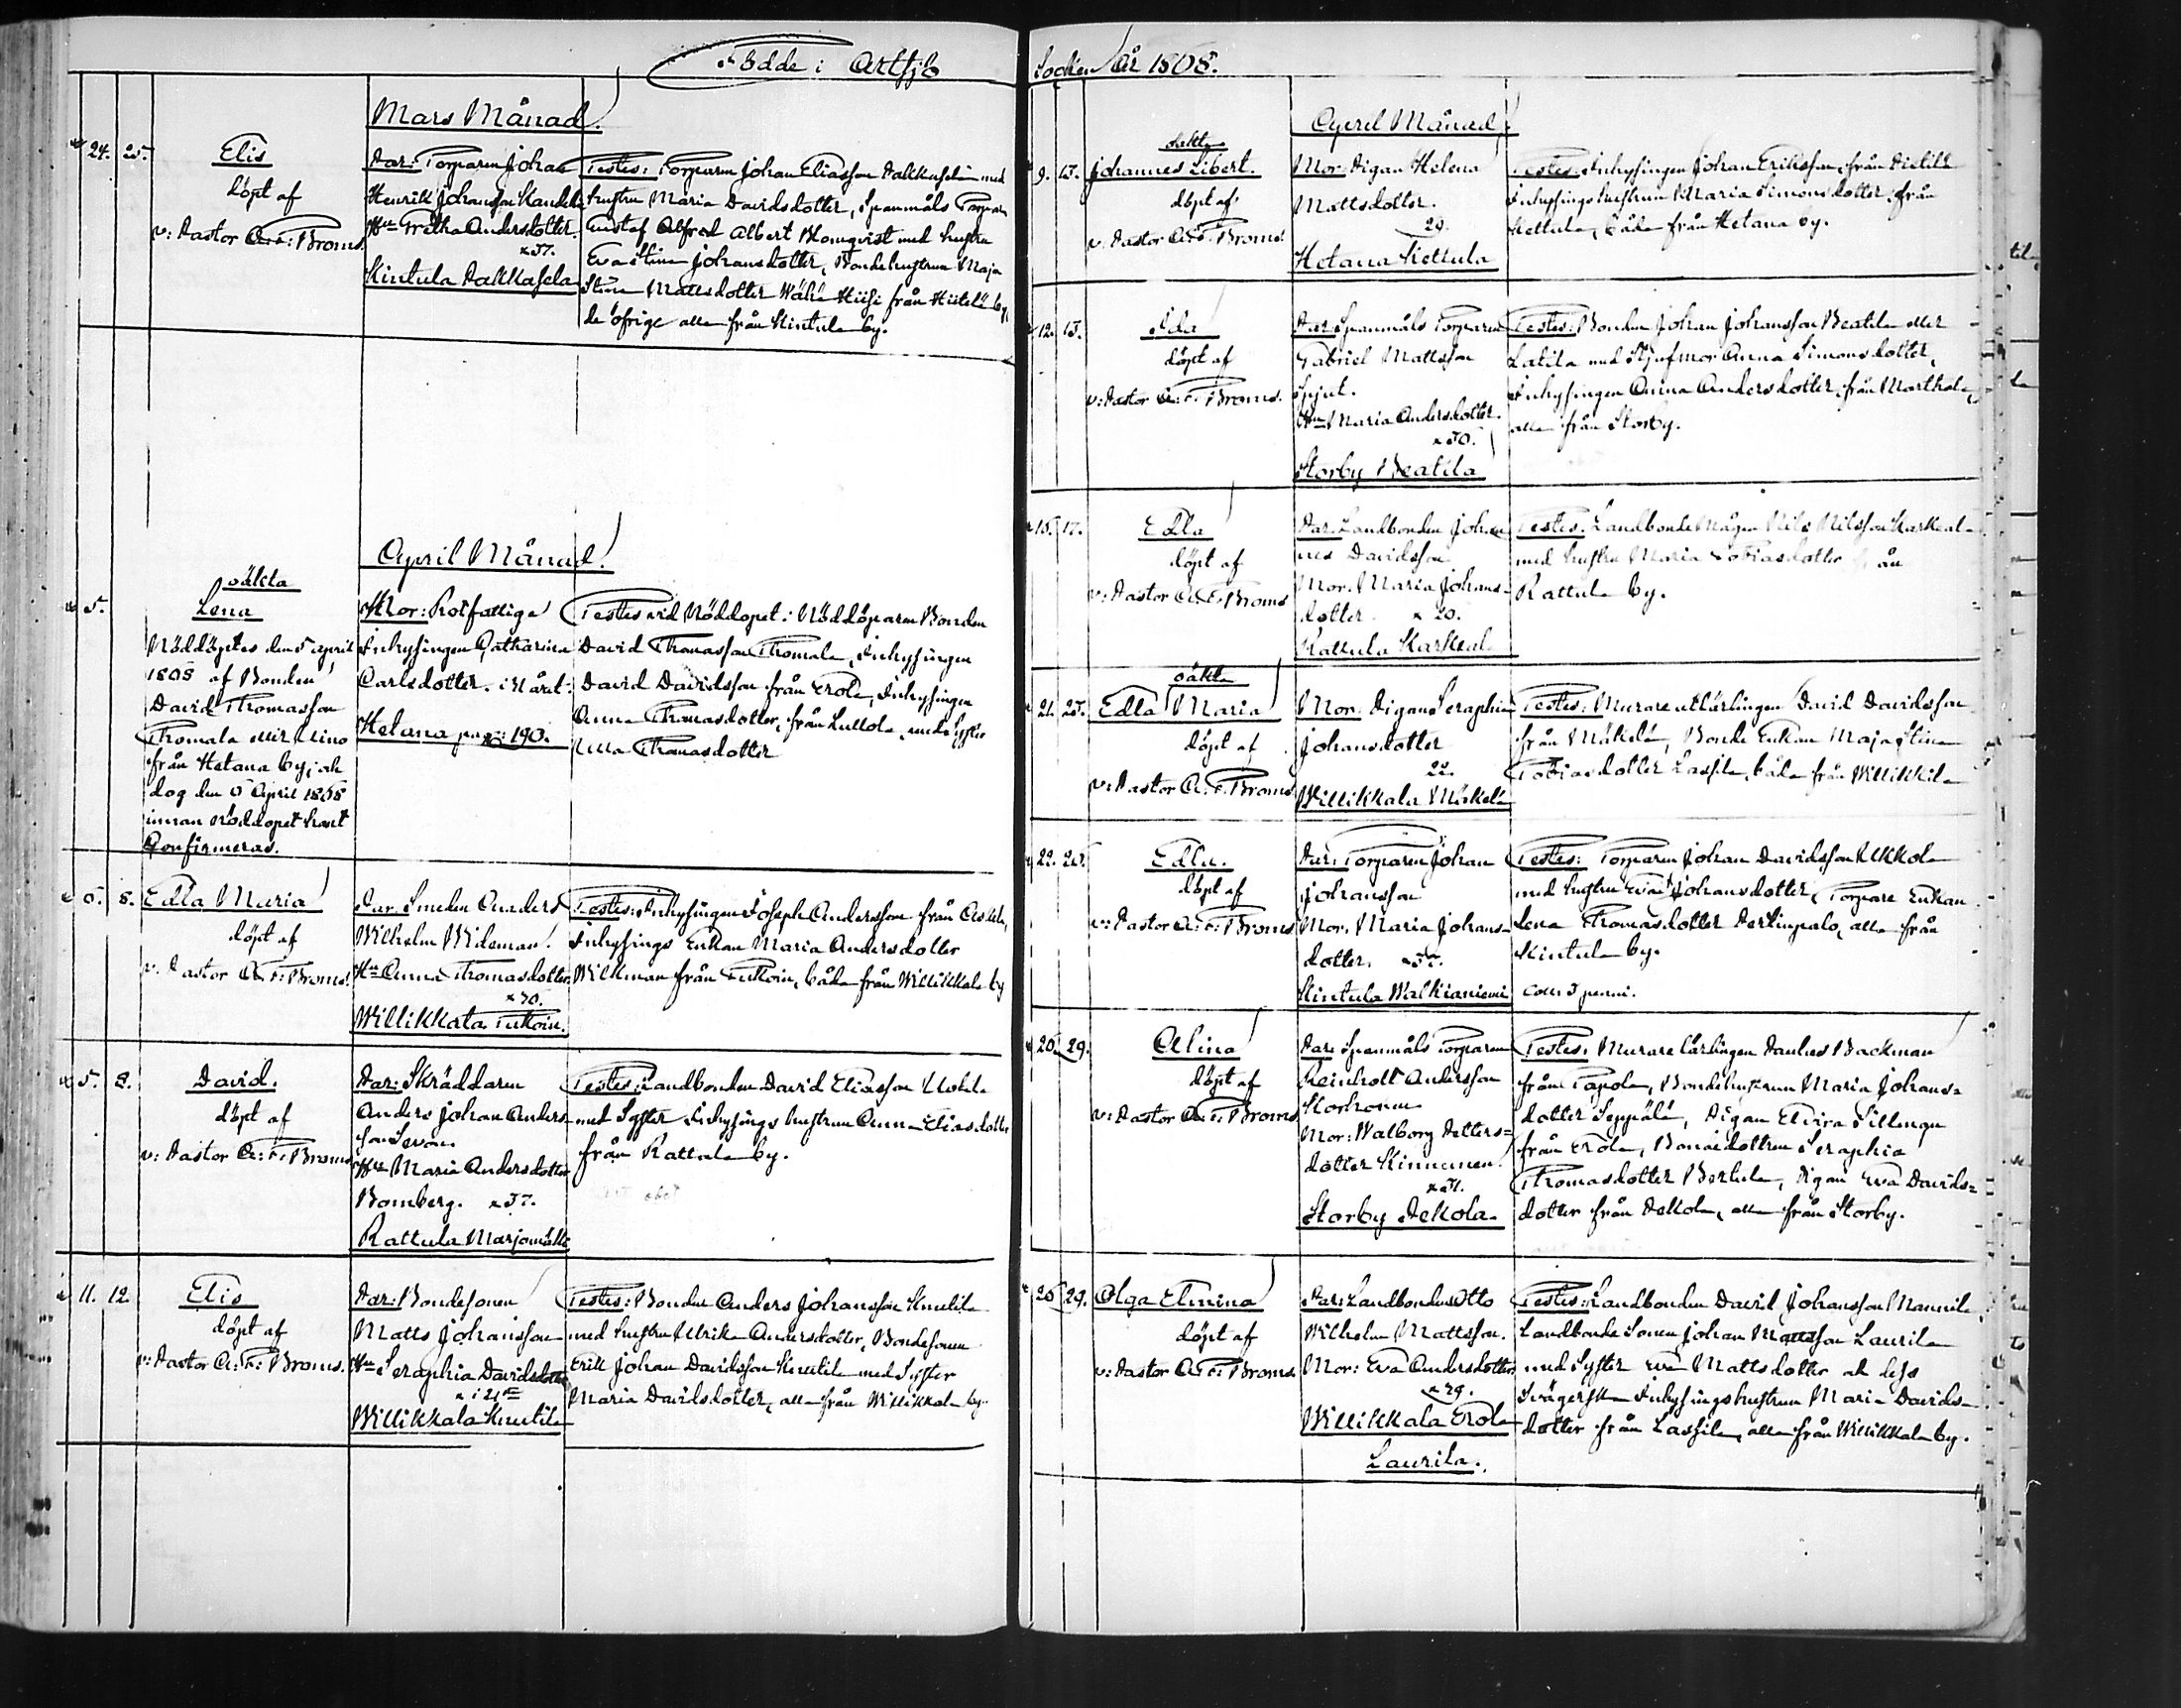 Födde i Artsjö
Mars Månad.
24. 25.
Elis
döpt af
v: Pastor A: F: Broms.
Par: Torparen Johan
Henrik Johansson
Hu Gretha Andersdotter.
x 37.
Kintula Pakkasela
Testes: Torparen Johan Eliasson med
hustru Maria Davidsdotter, Spanmåls Torparn
Gustaf Alfred Albert Blomqvist med hustru
Eva Stina Johansdotter, Bondehustrun Maja
Stina Mattsdotter Wähä Hiisi från by,
de öfrige alla från Kintula by.
April Månad.
5.
oäkta
Lena
Nöddöptes den 5 April
af Bonden
David Thomasson
Thomala eller
från Hetana by, och
dog den April
innan Nöddopet hant
Confirmeras.
Mor: Rotfattige
Inhysingen Catharina
Carlsdotter.
Hetana pag: 190.
Testes vid Nöddopet: Nöddöparen Bonden
David Thomasson Thomala, Inhysingen
David Davidsson från Erola, Inhysingen
Anna Thomasdotter, från med Syster
Thomasdotter
6. 8.
Edla Maria
döpt af
v: Pastor A: F: Broms.
Par. Smeden Anders
Wilhelm Wideman.
Hu Anna Thomasdotter
Willikkala
Testes: Inhysingen Joseph Andersson från
Inhysings Enkan Maria Andersdotter
från båda från Willikkala by
5. 8.
David.
döpt af
v: Pastor A: F: Broms
Par: Skräddaren
Anders Johan Anders
son
Hu Maria Andersdotter
Bomberg. x 37.
Rattula Marjomäki
Testes: Landbonden David Eliasson
med Syster Inhysings hustrun Anna Eliasdotter
från Rattula by.
11. 12.
Elis
döpt af
v: Pastor A: F: Broms.
Par: Bondesonen
Matts Johansson
Hu Seraphia Davidsdotter
Willikkala Knutila
Testes: Bonden Anders Johansson Knutila
med hustru Ulrika Andersdotter, Bondesonen
Erik Johan Davidsson Knutila med Syster
Maria Davidsdotter, alla från Willikkala by.
Socken År
April Månad.
9. 13.
oäkta
Johannes Libert.
döpt af
v: Pastor A: F: Broms.
Mor: Pigan Helena
Mattsdotter.
29.
Hetana Kettula
Testes: Inhysingen Johan Eriksson från
Inhysings hustrun Maria Simonsdotter från
Kettula, båda från Hetana by.
12. 13.
Ida
döpt af
v: Pastor A: F: Broms.
Par: Spanmåls Torparen
Gabriel Mattsson
Spjut.
Hu Maria Andersdotter.
x 30.
Storby Beatila
Testes: Bonden Johan Johansson Beatila eller
med Styfmor Anna Simonsdotter,
Inhysingen Anna Andersdotter från Marthala,
alla från Storby.
15. 17.
Edla
döpt af
v: Pastor A: F: Broms
Par. Landbonden Johan
nes Davidsson
Mor. Maria Johans-
dotter. x 20.
Rattula Karkeala
Testes: Landbonde Mågen Nils Nilsson Karkeala
med hustru Maria Tobiasdotter från
Rattula by.
21. 25.
oäkta
Edla Maria
döpt af
v: Pastor A: F: Broms
Mor: Pigan Seraphia
Johansdotter
22.
Willikkala Märkelä
Testes: Murarelärlingen David Davidsson
från Bonde Enkan Maja Stina
Tobiasdotter Lassila, båda från Willikkala
22. 25.
Edla.
döpt af
v: Pastor A: F: Broms
Par: Torparen Johan
Johansson
Mor. Maria Johans-
dotter.
Kintula Walkianiemi
Testes: Torparen Johan Davidsson Ukkola
med hustru Eva Johansdotter, Torpare Enkan
Lena Thomasdotter alla från
Kintula by.
29.
Alina
döpt af
v: Pastor A: F: Broms
Par: Spanmåls Torparen
Reinholt Andersson
Storhonen
Mor: Walborg Petters=
dotter Kinnunen.
x 31.
Storby Pekola.
Testes: Murarelärlingen Paulus Backman
från Papola, Bondehustrun Maria Johans=
dotter Seppälä, Pigan Elvira
från Erola, Bondedottren Seraphia
Thomasdotter Pertula, Pigan Eva Davids=
dotter från Pekola, alla från Storby.
29.
Olga Elmina
döpt af
v: Pastor A: F: Broms.
Par: Landbonden Otto
Wilhelm Mattsson.
Mor: Eva Andersdotter
x 29.
Willikkala Erola
Laurila.
Testes: Landbonden David Johansson Mannila
Landbonde Sonen Johan Mattsson Laurila
med Syster Eva Mattsdotter och dess
Svägerska Inhysings hustrun Maria Davids-
dotter från Lassila, alla från Willikkala by.